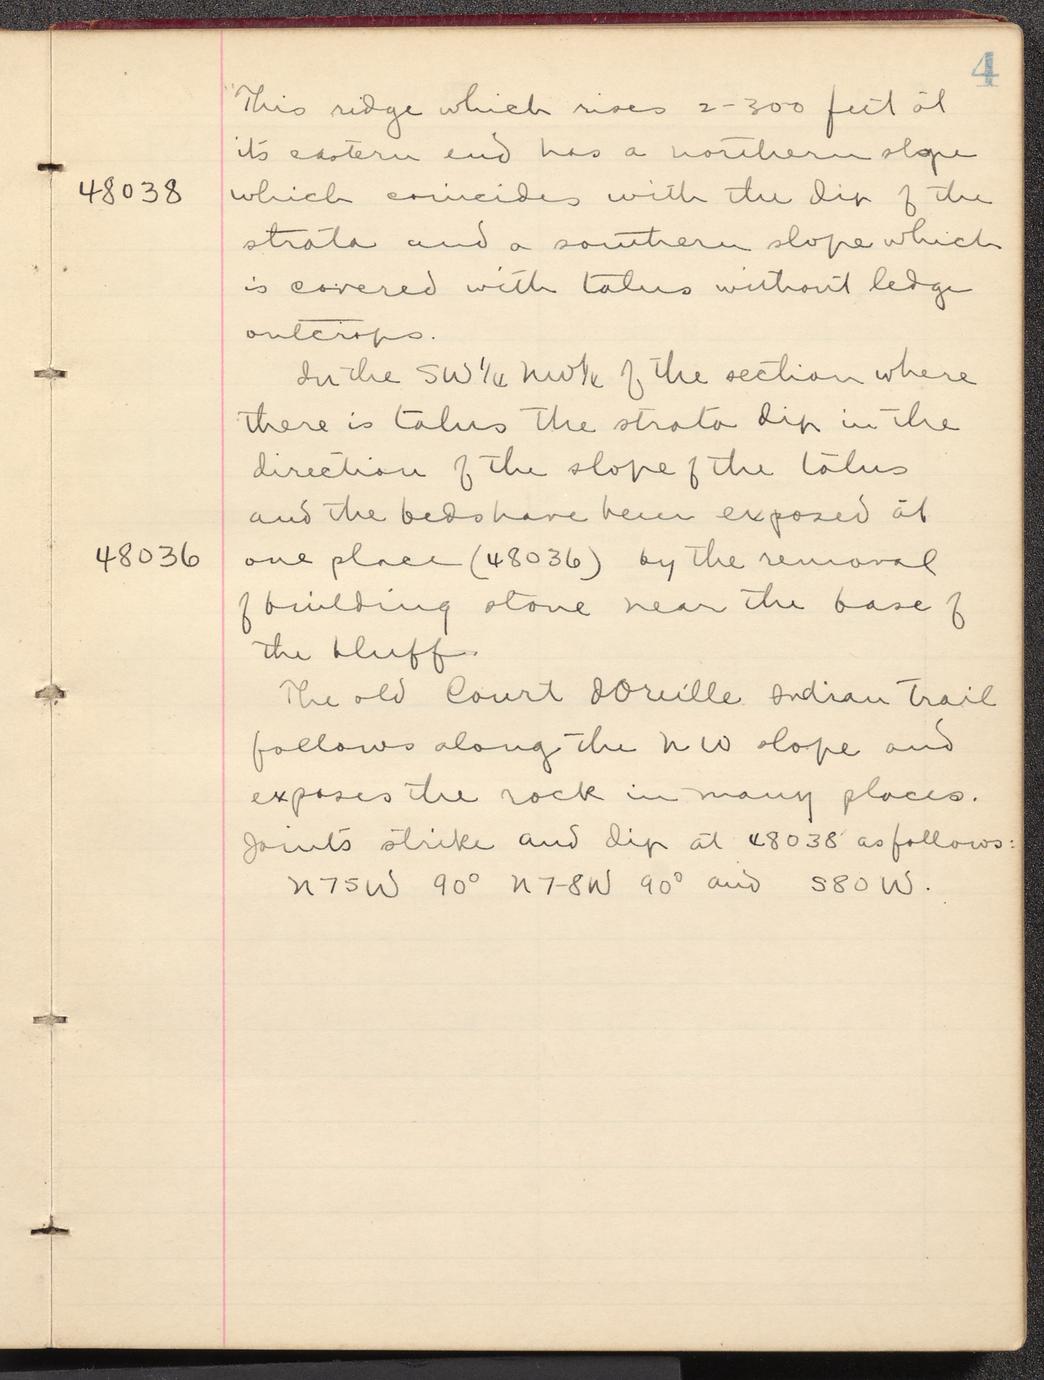 4
This ridge which rises 2-300 feet at
its eastern end has a northern slope
48038 which coincides with the dip of the
strata and a southern slope which
is covered with talus without ledge
outcrops.
In the SW¼ NW¼ of the section where
there is talus the strata dip in the
direction of the slope of the talus
and the beds have been exposed at
48036 one place (48036) by the removal
of building stone near the base of
the bluff.
The old Court DOreille Indian Trail
follows along the NW slope and
exposes the rock in many places.
Joints strike and dip at 48038 as follows:
N75W 90° N78W 90° and S80W.